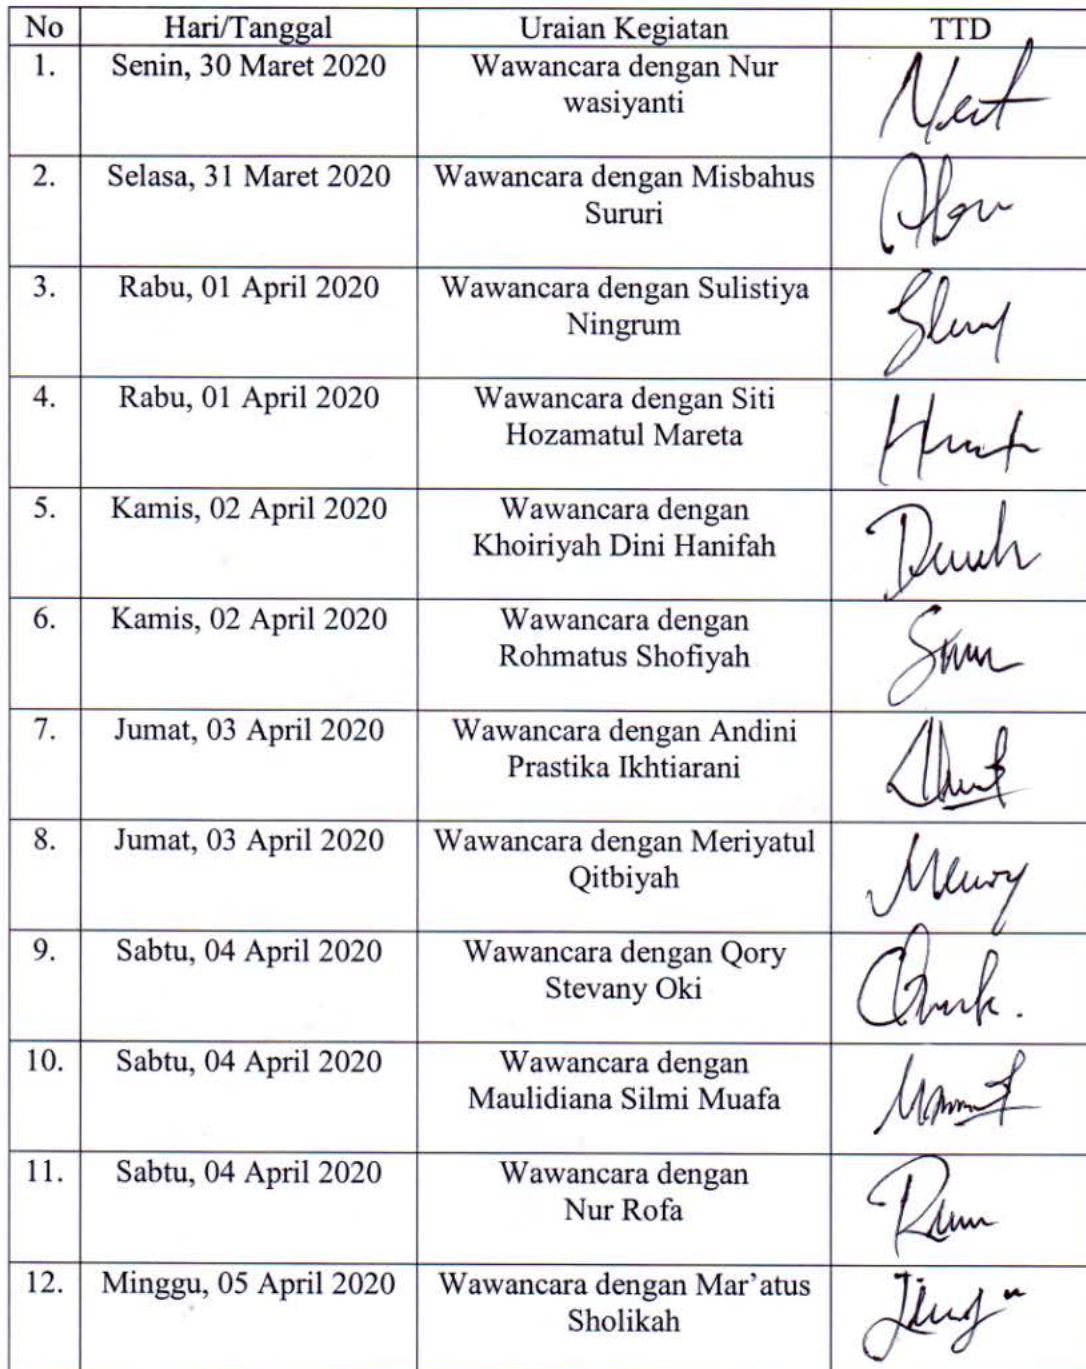 No Hari/Tanggal Uraian Kegiatan TTD
1. Senin, 30 Maret 2020 Wawancara dengan Nur
wasiyanti
2. Selasa, 31 Maret 2020 Wawancara dengan Misbahus
Sururi
3. Rabu, 01 April 2020 Wawancara dengan Sulistiya
Ningrum
4. Rabu, 01 April 2020 Wawancara dengan Siti
Hozamatul Mareta
5. Kamis, 02 April 2020 Wawancara dengan
Khoiriyah Dini Hanifah
6. Kamis, 02 April 2020 Wawancara dengan
Rohmatus Shofiyah
7. Jumat, 03 April 2020 Wawancara dengan Andini
Prastika Ikhtiarani
8. Jumat, 03 April 2020 Wawancara dengan Meriyatul
Qitbiyah
9. Sabtu, 04 April 2020 Wawancara dengan Qory
Stevany Oki
10. Sabtu, 04 April 2020 Wawancara dengan
Maulidiana Silmi Muafa
11. Sabtu, 04 April 2020 Wawancara dengan
Nur Rofa
12. Minggu, 05 April 2020 Wawancara dengan Mar’atus
Sholikah